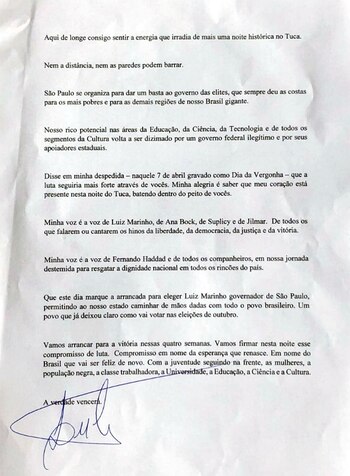 Aqui de longe consigo sentir a energia que irradia de mais uma noite histórica no Tuca.
Nem a distância, nem as paredes podem barrar.
São Paulo se organiza para dar um basta ao governo das elites, que sempre deu as costas
para os mais pobres e para as demais regiões de nosso Brasil gigante.
Nosso rico potencial nas áreas da Educação, da Ciência, da Tecnologia e de todos os
segmentos da Cultura volta a ser dizimado por um governo federal ilegítimo e por seus
apoiadores estaduais.
Disse em minha despedida – naquele 7 de abril gravado como Dia da Vergonha – que a
luta seguiria mais forte através de vocês. Minha alegria é saber que meu coração está
presente nesta noite do Tuca, batendo dentro do peito de vocês.
Minha voz é a voz de Luiz Marinho, de Ana Bock, de Suplicy e de Jilmar. De todos os
que falarem ou cantarem os hinos da liberdade, da democracia, da justiça e da vitória.
Minha voz é a voz de Fernando Haddad e de todos os companheiros, em nossa jornada
destemida para resgatar a dignidade nacional em todos os rincões do país.
Que este dia marque a arrancada para eleger Luiz Marinho governador de São Paulo,
permitindo ao nosso estado caminhar de mãos dadas com todo o povo brasileiro. Um
povo que já deixou claro como vai votar nas eleições de outubro.
Vamos arrancar para a vitória nessas quatro semanas. Vamos firmar nesta noite esse
compromisso de luta. Compromisso em nome da esperança que renasce. Em nome do
Brasil que vai ser feliz de novo. Com a juventude seguindo na frente, as mulheres, a
população negra, a classe trabalhadora, a Universidade, a Educação, a Ciência e a Cultura.
A verdade vencerá.